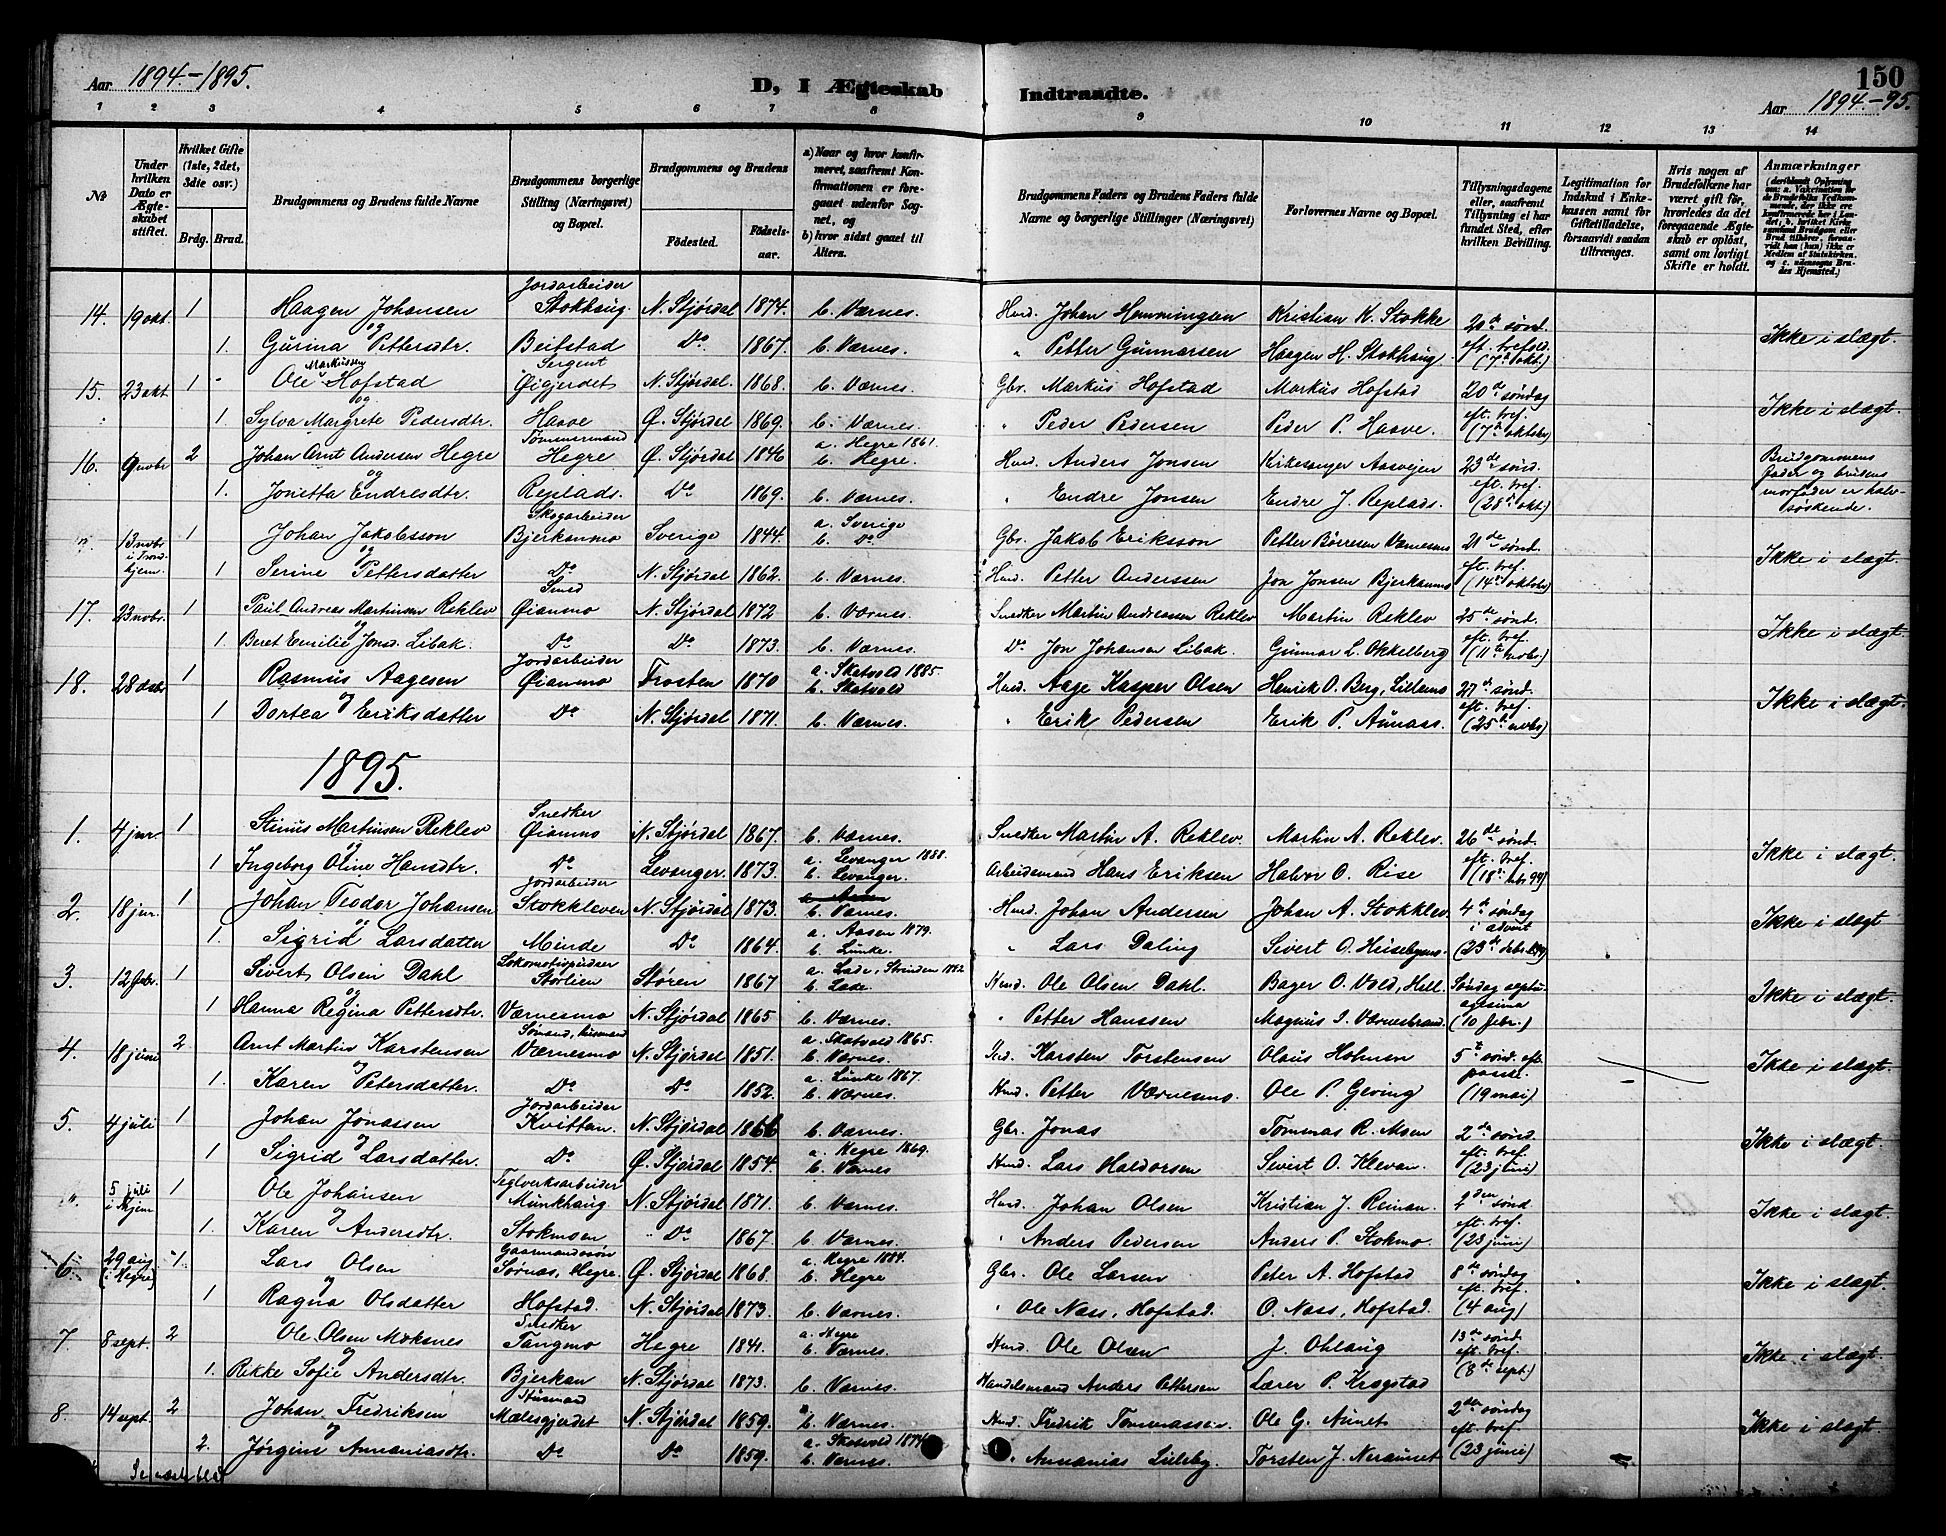 150
Aar 1894-1895.
D, I Ægteskab Indtraadte.
Aar 1894.-95.
1 2 3 4 5 6 7 8 9 10 11 12 13 14
No
Under hvilken Dato er Ægteskabet stiftet.
Hvilket Gifte (1ste, 2det, 3die osv.)
Brdg. Brud.
Brudgommens og Brudens fulde Navne
Brudgommens borgerlige Stilling (Næringsvei) og Bopæl.
Brudgommens og Brudens
Födested. Födselsaar.
a) Naar og hvor konfirmeret, saafremt Konfirmationen er foregaaet udenfor Sognet, og
b) hvor sidst gaaet til Alters.
Brudgommens Faders og Brudens Faders fulde Navne og borgerlige Stillinger (Næringsvei)
Forlovernes Navne og Bopæl.
Tillysningsdagene eller, saafremt Tillysning ei har fundet Sted, efter hvilken Bevilling.
Legitimation for Indskud i Enkekassen samt for Giftetilladelse, forsaavidt saadan tiltrænges.
Hvis nogen af Brudefolkene har været gift för, hvorledes da det foregaaende Ægteskab er oplöst, samt om lovligt Skifte er holdt.
Anmærkninger
14. 19 okt. 1 Haagen Johansen Jordarbeider Stokhaug. N. Stjørdal 1874. b. Værnes. Husd. Johan Hemmingsen Kristian K. Stokke 20de sønd. eft. trefold. (7de okt.) Ikke i slægt.
og
1. Gurina Pettersdtr. Beitstad Do 1867. b. Værnes. " Petter Gunnarsen Haagen H. Stokhaug
15. 23 okt. 1 Ole Markussen Hofstad Sergent Øigjerdet N. Stjørdal. 1868. b. Værnes. Gbr. Markus Hofstad Markus Hofstad 20de søndag eft. tref. (7de oktober) Ikke i slægt.
og
1. Sylva Margrete Pedersdtr. Haave Ø. Stjørdal 1869. b. Værnes. " Peder Pedersen Peder P. Haave.
16. 9 novbr. 2 Johan Arnt Andersen Hegre Tømmermand Hegre Ø. Stjørdal 1846 a. Hegre 1861. b. Hegre. Husd. Anders Jonsen Kirkesanger Aasvejen 23de sønd. eft. tref. (28de okt.) Brudgommens fader og brudens morfader er halvsøskende.
og
1. Jonetta Endresdtr. Replads. Do 1869. b. Værnes. " Endre Jonsen Endre J. Replads.
13 novbr. i Trondhjem. 1 Johan Jakobsson Skogarbeider Bjerkanmo Sverige 1844. a. Sverige b. Do Gbr. Jakob Eriksson Petter Børresen Værnesmo 21de sønd. eft. tref. (14de oktober) Ikke i slægt.
og
1 Serine Pettersdatter Do N. Stjørdal 1862. b. Værnes. Husd. Petter Anderssen Jon Jonsen Bjerkanmo
17. 23 novbr. 1 Paul Andreas Martinsen Reklev Smed Øianmo N. Stjørdal 1872 b. Værnes. Snedker Martin Andreassen Reklev Martin Reklev 25de sønd. eft. tref. (11te novbr.) Ikke i slægt.
og
1 Beret Emilie Jonsd. Libak. Do Do 1873. b. Værnes. Do Jon Johansen Libak. Gunnar L. Okkelberg
18. 28 desbr. 1 Rasmus Aagesen Jordarbeider Øianmo Frosten 1870 a. Skatvold 1885. b. Skatvold Husd. Aage Kasper Olsen Henrik O. Berg, Lillemo 27de sønd. eft. tref. (25de novbr) Ikke i slægt.
1 Dortea og Eriksdatter Do N. Stjørdal 1871. b. Værnes. " Erik Pedersen Erik P. Aunaas.
1895.
1. 4 jnr. 1 Stinus Martinsen Reklev Snedker Øianmo N. Stjørdal 1867. b. Værnes. Snedker Martin A. Reklev. Martin A. Reklev. 26de sønd. eft. tref. Ikke i slægt.
og
1 Ingeborg Oline Hansdtr. Do Levanger. 1873. a. Levanger 1888. b. Levanger. Arbeidsmand Hans Eriksen Halvor O. Rise
2. 18 jnr. 1 Johan Teodor Johansen Jordarbeider Stokkleven N. Stjørdal 1873. b. Værnes. Husd. Johan Andersen Johan A. Stokklev. 4de søndag i advent Ikke i slægt
og
1. Sigrid Larsdatter Minde Do 1864. a. Aasen 1879. b. Lunke. " Lars Daling Sivert O. Huisebymo.
3. 12 febr. 1 Sivert Olsen Dahl Lokomotivpudser Storlien Støren 1867 a. Lade, Strinden b. Lade. Husd. Ole Olsen Dahl. Bager O. Vold, Hell. Søndag septuagesima (10 febr.) Ikke i slægt.
og
1 Hanna Regina Pettersdtr. Værnesmo N. Stjørdal 1865 b. Værnes. " Petter Hanssen Magnus I. Værnesbrand.
4. 18 juni 2 Arnt Martin Karstensen Sømand, Husmand Værnesmo N. Stjørdal 1851. a. Skatvold 1865. b. Værnes. Ind. Karsten Torstensen Olaus Holmen 5te sønd. eft. paaske. (19 mai) Ikke i slægt.
1. Karen og Petersdatter. Do Do 1852. a. Lunke 1867. b. Værnes. Husd. Petter Værnesmo. Ole P. Geving
5. 4 juli 1 Johan Jonassen Jordarbeider Kvittan. N. Stjørdal 1866 b. Værnes. Gbr. Jonas Tommas R. Moen 2de sønd. eft. tref. (23 juni) Ikke i slægt.
1 Sigrid og Larsdatter. Do Ø. Stjørdal 1854. a. Hegre 1869. b. Værnes Husd. Lars Haldorsen Sivert O. Klevan.
". 5 juli 1 Ole Johansen Teglverksarbeider Munkhaug N. Stjørdal 1871. b. Værnes. Husd. Johan Olsen Kristian J. Reinan. 2den sønd. eft. tref. (23 juni) Ikke i slægt.
1. Karen og Andersdtr. Stokmoen " Do 1867. b. Værnes. " Anders Pedersen Anders P. Stokmo.
6 29 aug. (i Hegre) 1 Lars Olsen Gaarmandssøn Sørnæs, Hegre. Ø. Stjørdal 1868. a. Hegre 1884. b. Hegre Gbr. Ole Larsen Peter A. Hofstad 8de søndag eft. tref. (4 aug) Ikke i slægt.
1 Ragna og Olsdatter Hofstad. N. Stjørdal 1873. b. Værnes. " Ole Næss, Hofstad. O. Næss, Hofstad.
7 8 sept. 2 Ole Olsen Moksnes Snedker Tangmo Hegre 1841. a. Hegre b. Værnes. Husd. Ole Olsen J. Ohlaug 13de sønd. eft. tref. (8de sept.) Ikke i slægt.
og
1. Rikke Sofie Andersdtr. Bjerkan N. Stjørdal 1873. b. Værnes. Handelsmand Anders Pettersen Lærer P. Kragstad
8. 14 sept. 2 Johan Fredriksen Mælesgjerdet N. Stjørdal 1859. a. b. Værnes. Husd. Fredrik Tommassen Ole G. Aunet 2den søndag eft. tref. (23 juni) Ikke i slægt.
2. Jørgine og Annaniasdtr. Do Do 1859. a. Skatvold b. Værnes. " Annanias Lilleby. Torsten J. Neraunet